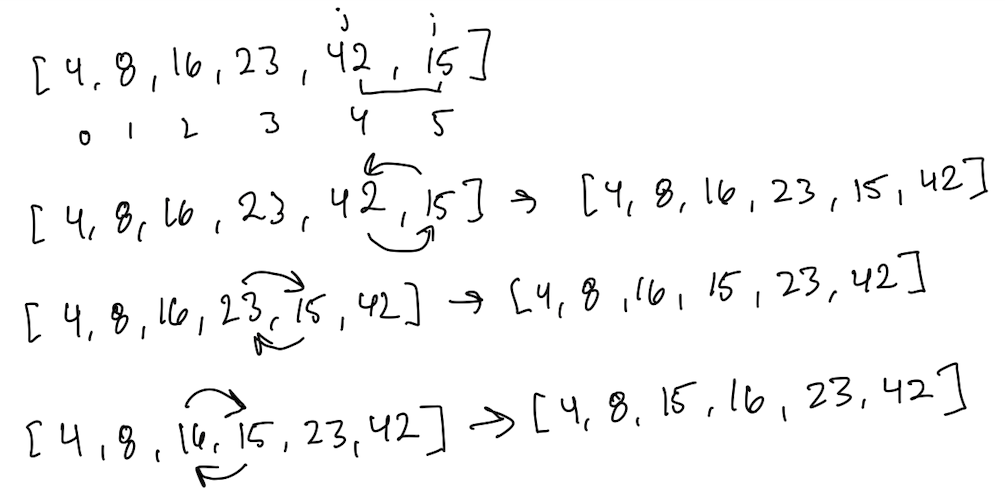 j i
[4, 8, 16, 23, 42, 15]
0 1 2 3 4 5
[4, 8, 16, 23, 42, 15] → [4, 8, 16, 23, 15, 42]
[4, 8, 16, 23, 15, 42] → [4, 8, 16, 15, 23, 42]
[4, 8, 16, 15, 23, 42] → [4, 8, 15, 16, 23, 42]